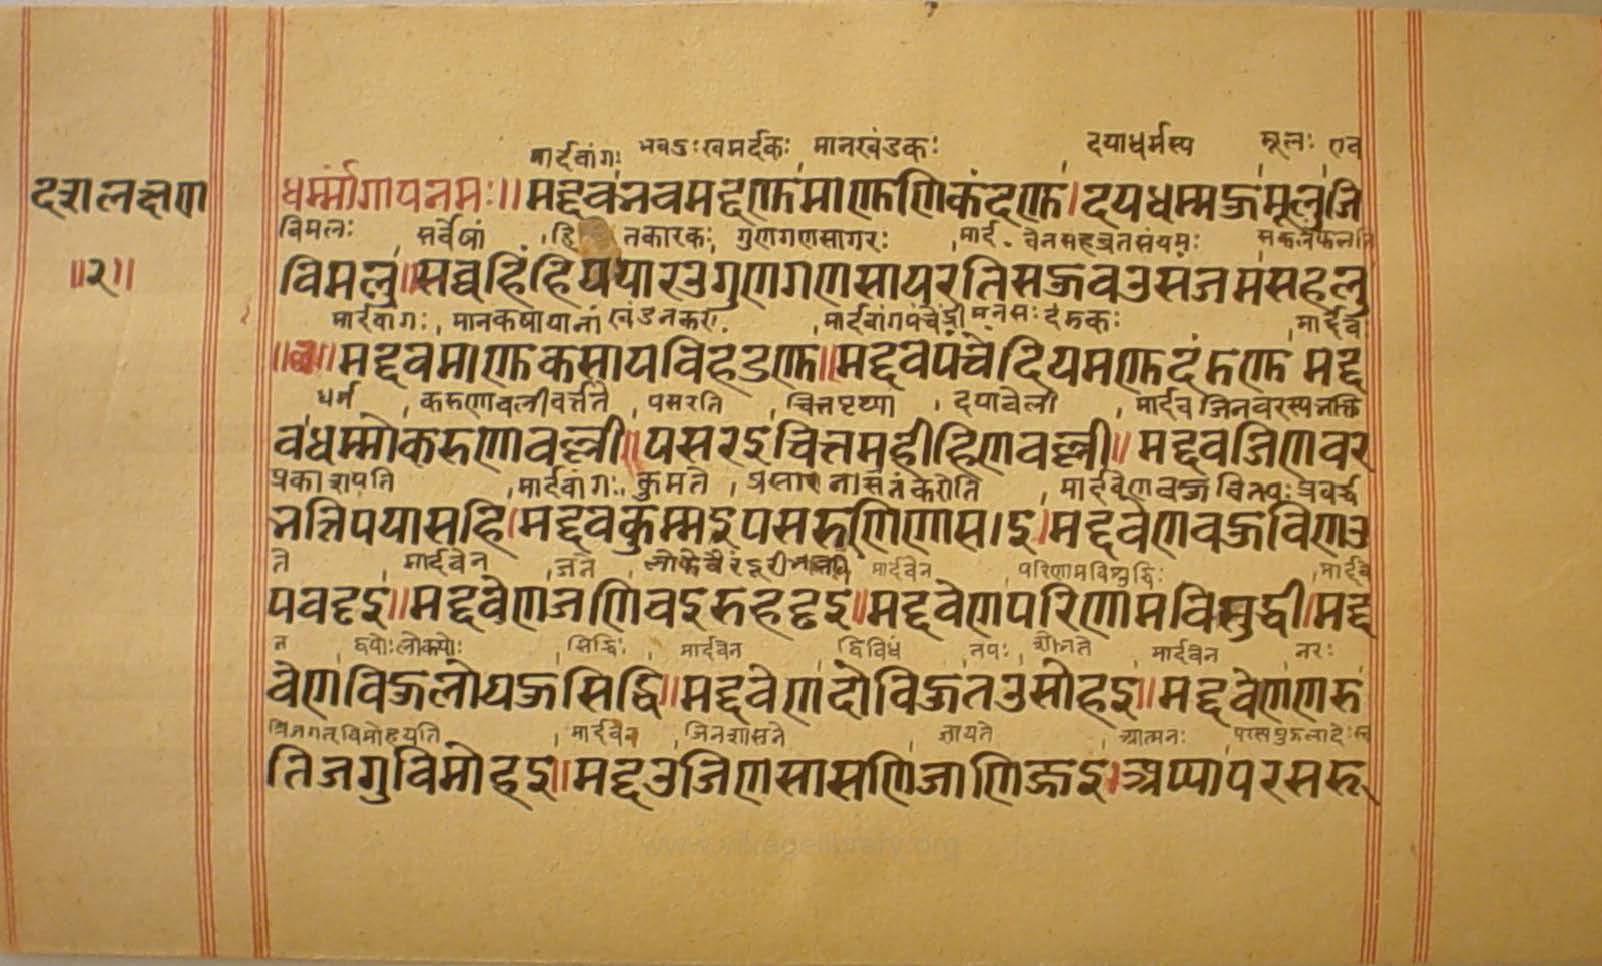 मार्दवांगः भवदुःखमर्दकः मानखंडकः दयाधर्मस्य मूलः एव
दशलक्षण धर्म्मांगायनमः॥ मद्दवंनवमद्दणुमाणणिकंदणु। दयधम्महुमूलुजि
विमलः सर्वेषां हि तकारकः गुणगणसागरः मार्द वेनसहव्रतसंयमः
॥२॥ विमलु॥ सव्वहिंहिययारउगुणगणसायरतिसहुवउसंजमसहलु
मार्दवांगः मानकषायानां खंडनकरण मार्दवांगपंचेंद्री मनसः दंडकः मार्दव
मद्दवमाणुकसायविहडणु॥ मद्दवपंचेदियमणुदंडणु मद्द
धर्म करुणावलीवर्त्तते पसरति चित्तपृथ्या दयावेली मार्दव जिनवरस्यभक्ति
वधम्मोकरुणावल्ली॥ पसरइचित्तमहीहिणवल्ली॥ मद्दवजिणवर
प्रकाशयति मार्दवांगः कुमते मार्दवेण
भत्तिपयासहि। मद्दवकुम्मइपसरुणिणासइ। मद्दवेणवहुविणउ
ते मार्दवेन जने मार्दवेन परिणामविशुद्धिः मार्दवे
पवट्टइ॥ मद्दवेणजणिवइरुहट्टइ॥ मद्दवेणपरिणामविसुद्धी॥ मद्द
न द्वयोःलोकयोः सिद्धिः मार्दवेन द्विविधं तपः शोभते मार्दवेन नरः
वेणविहुलोयहुसिद्धि॥ मद्दवेणदोविहुतउसोहइ॥ मद्दवेणणरु
त्रिजगत्विमोहयति मार्दवेन जिनशासने ज्ञायते आत्मनः
तिजगुविमोहइ॥ मद्दउजिणसासणिजाणिज्जइ॥ अप्पापरसरू